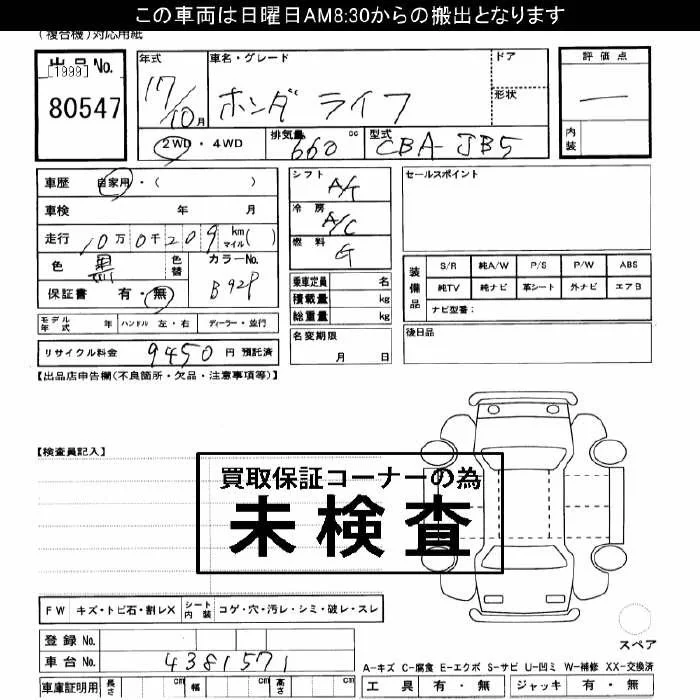 この車両は日曜日AM8:30からの搬出となります
(複合機)対応用紙
出品No.
[1999]
80547
年式
17/10月
車名・グレード
ホンダ ライフ
ドア
形状
2WD・4WD
排気量 660 cc
型式 CBA-JB5
評価点
—
内装
車歴 自家用・( )
車検 年 月
走行 10万0千209 km マイル( )
色 黒 色替 カラーNo. B92P
保証書 有・無
モデル年式 年 ハンドル 左・右 ディーラー・並行
リサイクル料金 9450 円 預託済
シフト A/T
冷房 A/C
燃料 G
乗車定員 名
積載量 kg
総重量 kg
名変期限
月 日
セールスポイント
装備品
S/R 純A/W P/S P/W ABS
純TV 純ナビ 革シート 外ナビ エアB
ナビ型番:
後日品
【出品店申告欄(不良箇所・欠品・注意事項等)】
【検査員記入】
買取保証コーナーの為
未検査
FW キズ・トビ石・割レX シート内装 コゲ・穴・汚レ・シミ・破レ・スレ
登録No.
車台No. 4381571
車庫証明用 長さ cm 幅 cm 高さ cm
スペア
A-キズ C-腐食 E-エクボ S-サビ U-凹ミ W-補修 XX-交換済
工具 有・無 ジャッキ 有・無